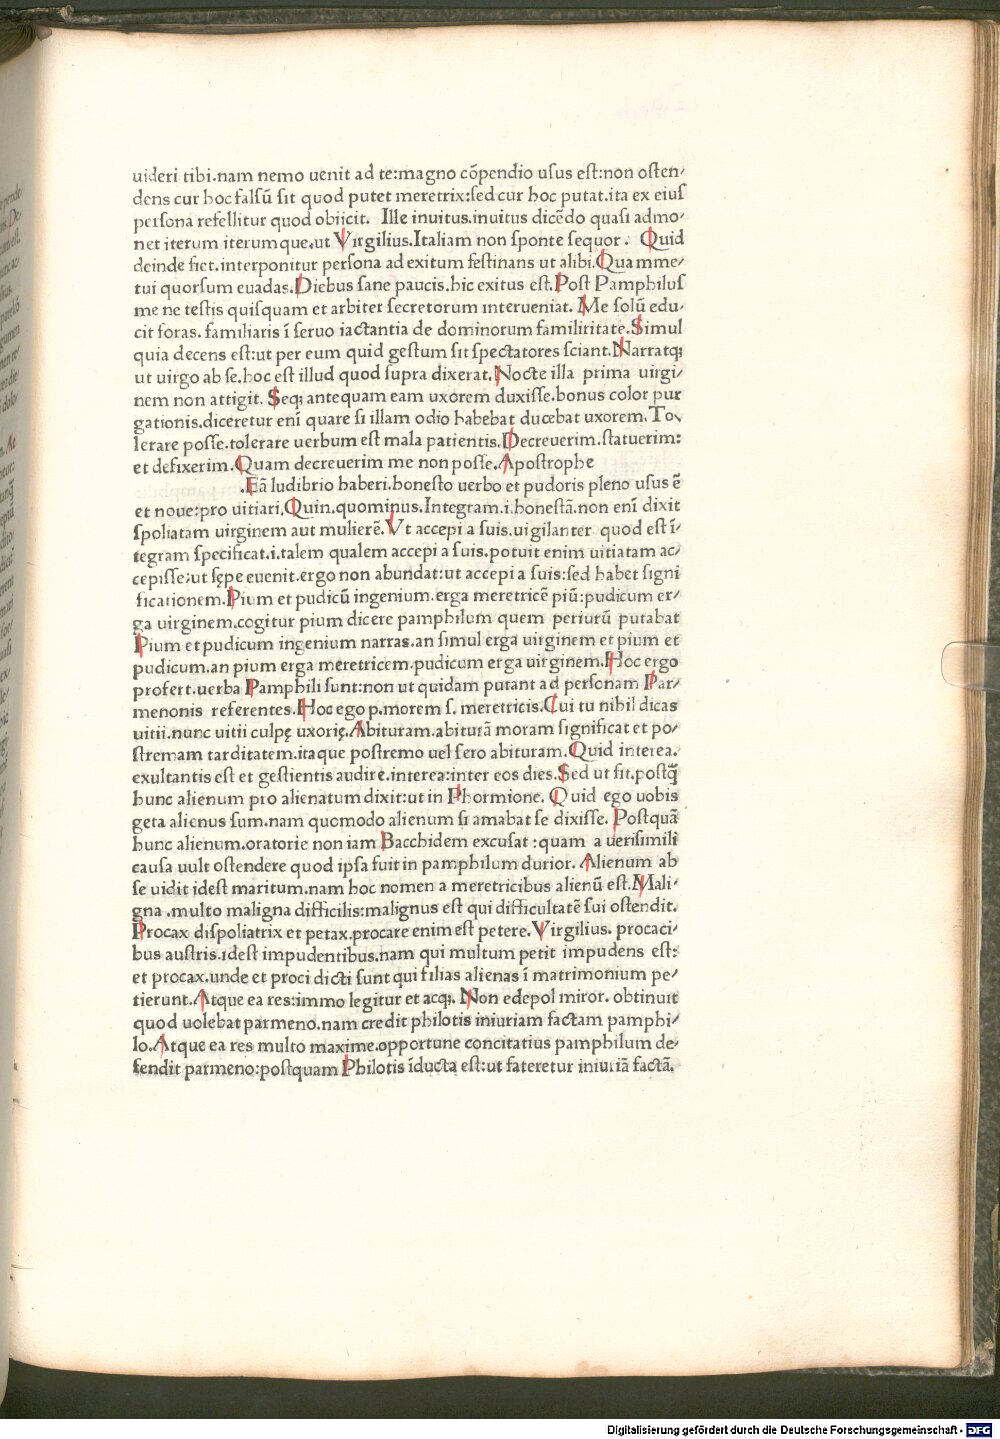 uideri tibi.nam nemo uenit ad te:magno cōpendio uſus eſt:non oſten⸗
dens cur hoc falſū ſit quod putet meretrix:ſed cur hoc putat.ita ex eiuſ
perſona refellitur quod obiicit. Ille inuitus.inuitus dicēdo quaſi admo⸗
net iterum iterumque.ut Virgilius.Italiam non ſponte ſequor. Quid
deinde fiet.interponitur perſona ad exitum feſtinans ut alibi.Quamme⸗
tui quorſum euadas.Diebus ſane paucis.hic exitus eſt.Poſt Pamphiluſ
me ne teſtis quiſquam et arbiter ſecretorum interueniat. Me ſolū edu⸗
cit foras. familiaris ī ſeruo iactantia de dominorum familiritate.Simul
quia decens eſt:ut per eum quid geſtum ſit ſpectatores ſciant.Narratqꝫ
ut uirgo ab ſe.hoc eſt illud quod ſupra dixerat.Nocte illa prima uirgi⸗
nem non attigit. Seqꝫ antequam eam uxorem duxiſſe.bonus color pur
gationis.diceretur enī quare ſi illam odio habebat ducebat uxorem.To⸗
lerare poſſe.tolerare uerbum eſt mala patientis.Decreuerim.ſtatuerim:
et defixerim.Quam decreuerim me non poſſe.Apoſtrophe
.Eā ludibrio haberi.honeſto uerbo et pudoris pleno uſus ē
et noue:pro uitiari.Quin.quominus.Integram.i.honeſtā.non enī dixit
ſpoliatam uirginem aut mulierē.Vt accepi a ſuis.uigilanter quod eſt ī⸗
tegram ſpecificat.i.talem qualem accepi a ſuis.potuit enim uitiatam ac⸗
cepiſſe:ut ſępe euenit.ergo non abundat:ut accepi a ſuis:ſed habet ſigni
ficationem.Pium et pudicū ingenium.erga meretricē piū:pudicum er⸗
ga uirginem.cogitur pium dicere pamphilum quem periurū putabat
Pium et pudicum ingenium narras.an ſimul erga uirginem et pium et
pudicum.an pium erga meretricem.pudicum erga uirginem.Hoc ergo
profert.uerba Pamphili ſunt:non ut quidam putant ad perſonam Par⸗
menonis referentes.Hoc ego p.morem ſ. meretricis.Cui tu nihil dicas
uitii.nunc uitii culpę uxorię.Abituram.abiturā moram ſignificat et po⸗
ſtremam tarditatem.itaque poſtremo uel ſero abituram.Quid interea.
exultantis eſt et geſtientis audire.interea:inter eos dies.Sed ut fit.poſtq̄
hunc alienum pro alienatum dixit:ut in Phormione. Quid ego uobis
geta alienus ſum.nam quomodo alienum ſi amabat ſe dixiſſe. Poſtquā
hunc alienum.oratorie non iam Bacchidem excuſat :quam a ueriſimili
cauſa uult oſtendere quod ipſa fuit in pamphilum durior. Alienum ab
ſe uidit ideſt maritum.nam hoc nomen a meretricibus alienū eſt.Mali⸗
gna .multo maligna difficilis:malignus eſt qui difficultatē ſui oſtendit.
Procax diſpoliatrix et petax.procare enim eſt petere.Virgilius. procaci⸗
bus auſtris.ideſt impudentibus.nam qui multum petit impudens eſt:
et procax.unde et proci dicti ſunt qui filias alienas ī matrimonium pe⸗
tierunt.Atque ea res:immo legitur et acqꝫ. Non edepol miror. obtinuit
quod uolebat parmeno.nam credit philotis iniuriam factam pamphi⸗
lo.Atque ea res multo maxime.opportune concitatius pamphilum de⸗
fendit parmeno:poſtquam Philotis īducta eſt:ut fateretur iniuriā factā.
Digitalisierung gefördert durch die Deutsche Forschungsgemeinschaft - DFG